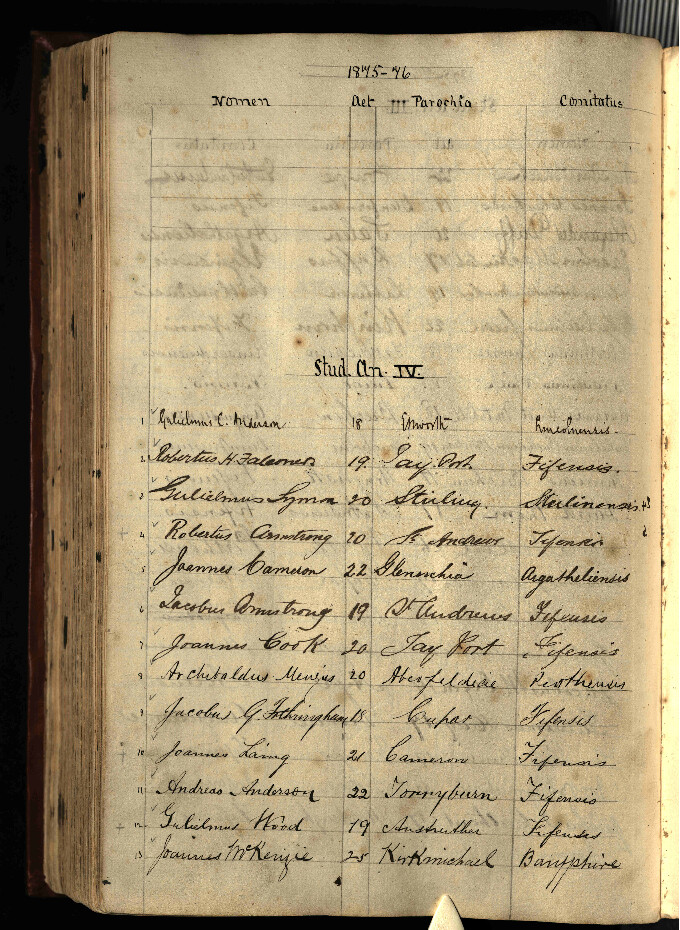 1875-76
Nomen Aet III Parochia Comitatus
Stud. An. IV.
1 Gulielmus C. Anderson 18 Epworth Lincolnensis.
2 Robertus H. Falconer. 19. Tay Port Fifensis.
3 Gulielmus Symon 20 Stirling. Sterlinensis
4 Robertus Armstrong 20 St Andrews Fifensis
5 Joannes Cameron 22 Glenorchia Argatheliensis
6 Jacobus Armstrong 19 St Andrews Fifensis
7 Joannes Cook 20 Tay Port Fifensis
8 Archibaldus Menzies 20 Aberfeldeae Perthensis
9 Jacobus G Fothringham 18 Cupar Fifensis
10 Joannes Laing 21 Cameron Fifensis
11 Andreas Anderson 22 Torryburn Fifensis
12 Gulielmus Wood 19 Anstruther Fifensis
13 Joannes McKenzie 25 Kirkmichael Banffshire